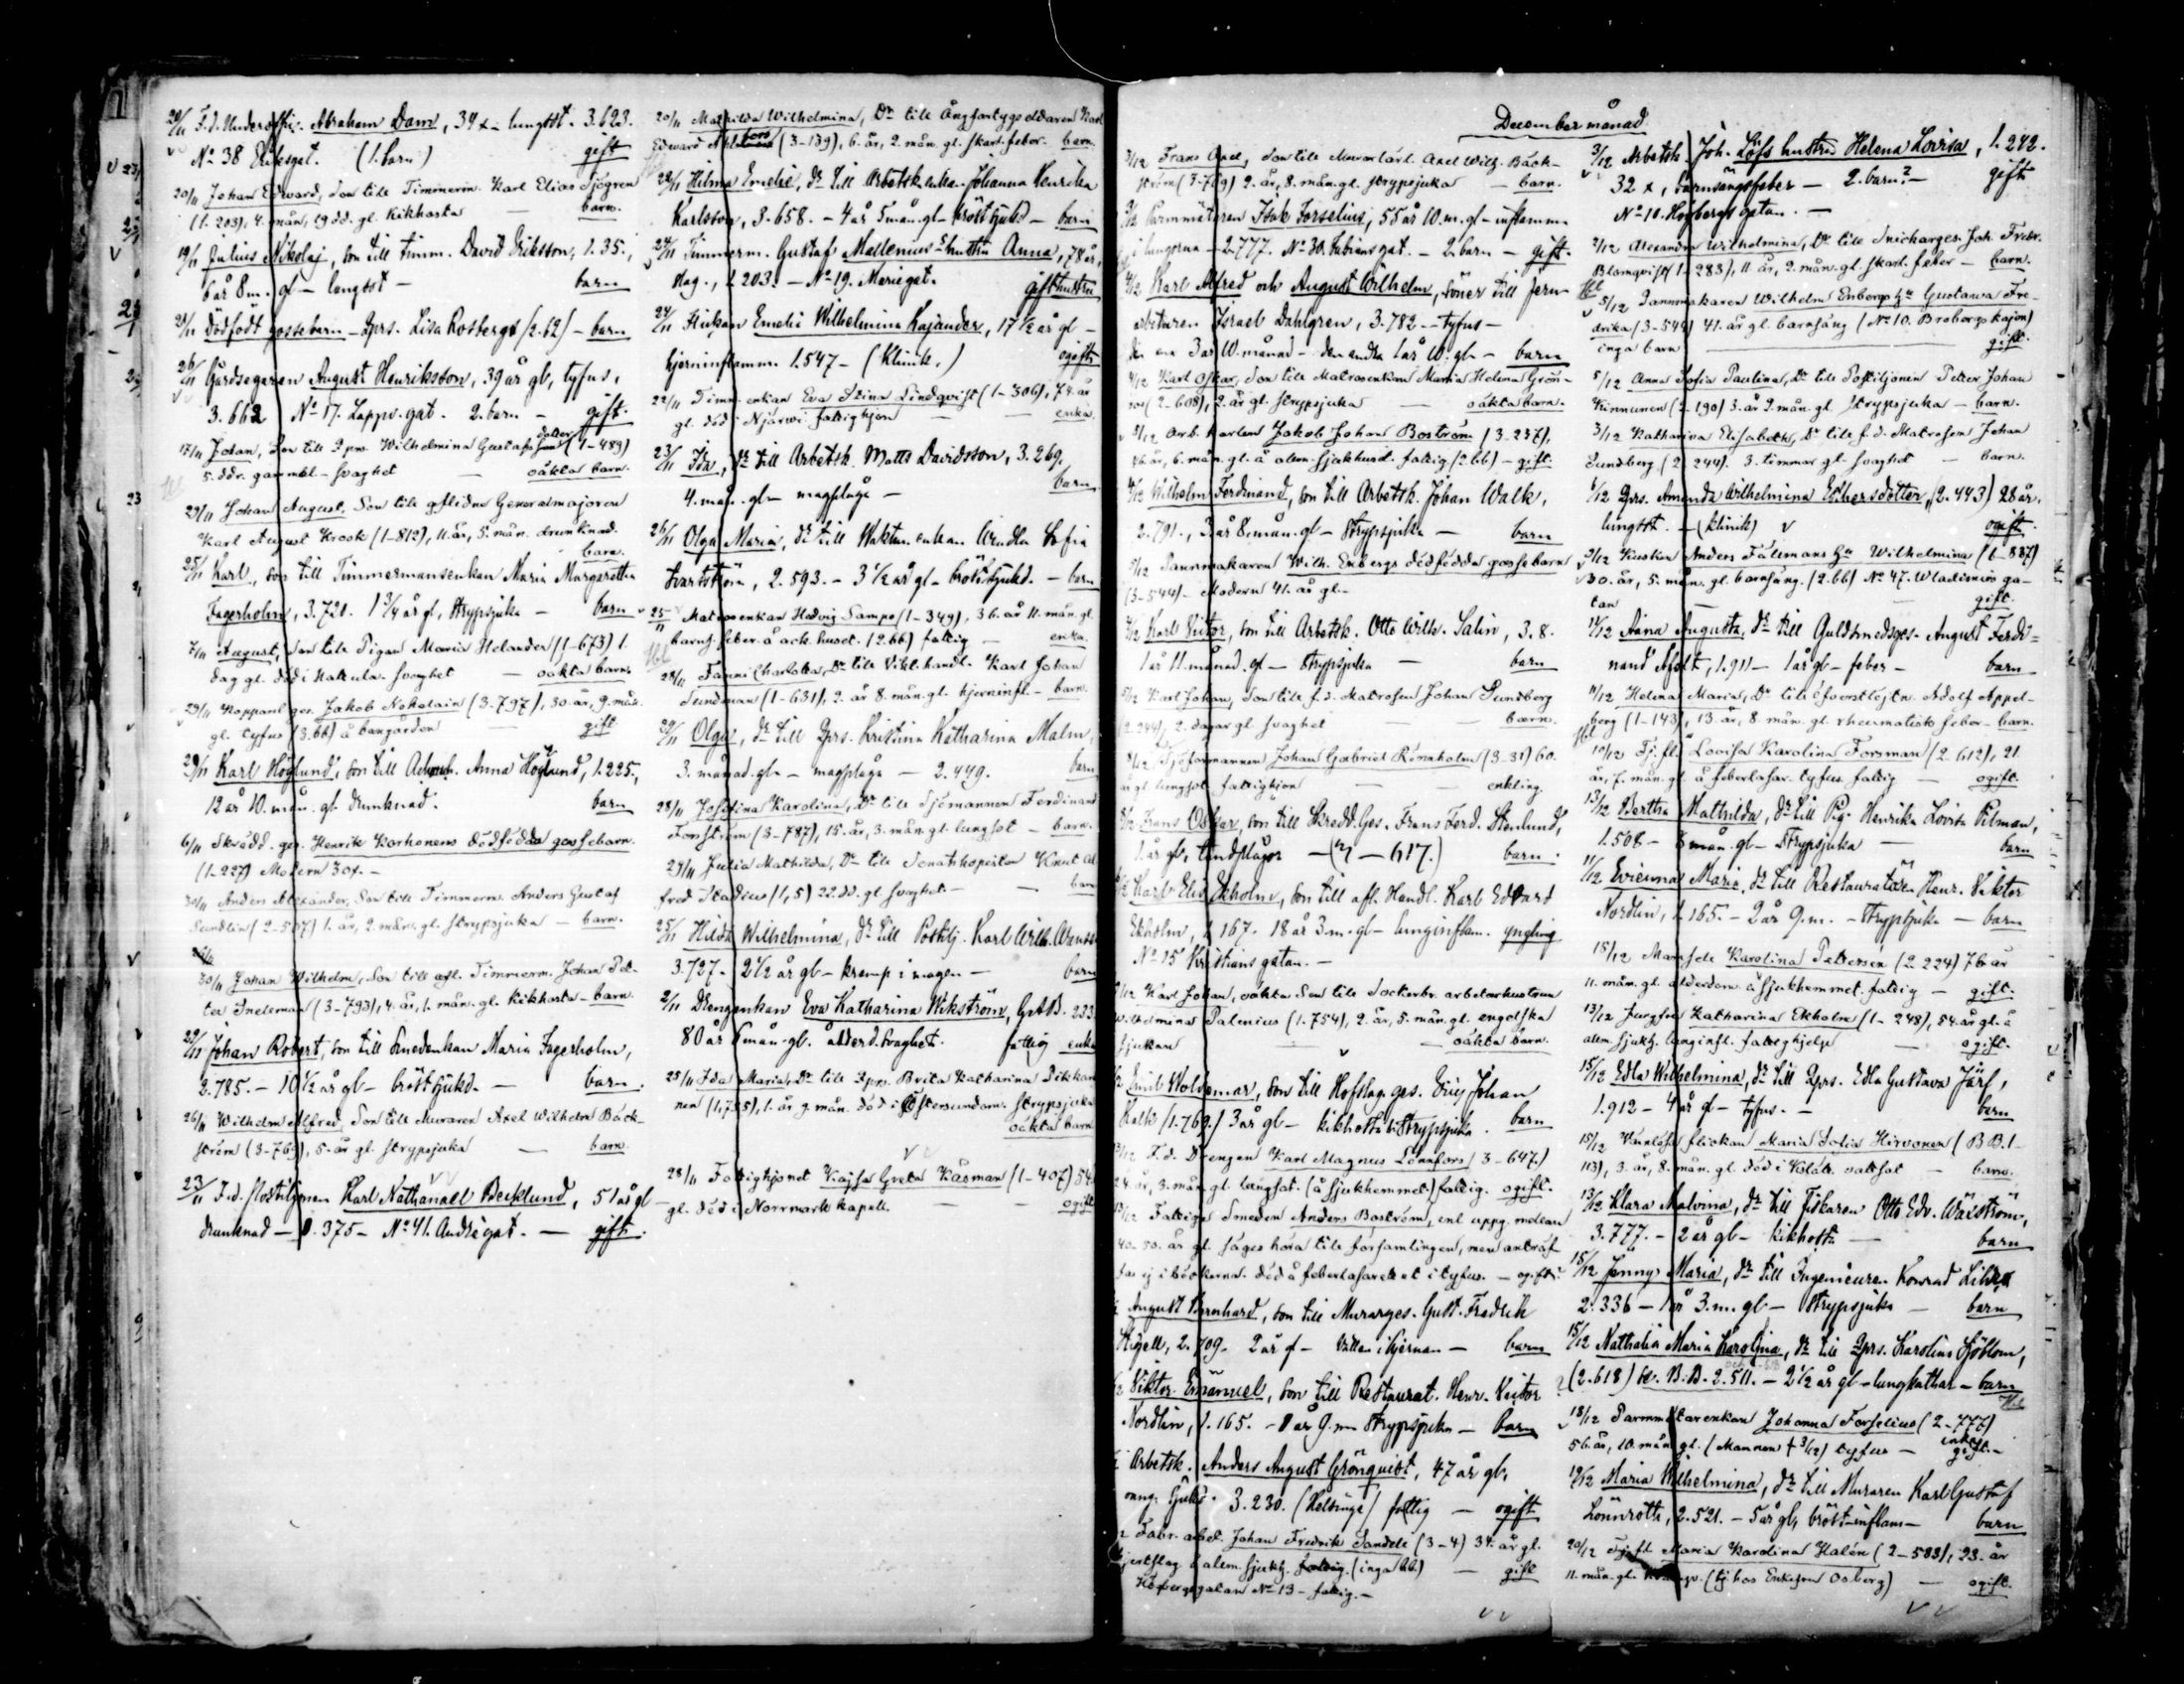 20/11 F.d. Underoffic. Abraham Dam, 34 x. lungsot. 3.623.
No 38 Eriksgat. (1. barn) gift
20/11 Johan Edward, Son till Timmerm. Karl Elias Sjögren
(1-203), 4. mån, 19 dd. gl. Kikhosta — barn.
19/11 Julius Nikolaj, son till timm. David Eriksson, 1.35.,
6 år 8 m. gl — lungsot — barn
21/11 Dödfödt gossebarn — Qprs. Lisa Rosbergs (2.62) — barn
26/11 Gårdsegaren August Henriksson, 39 år gl, tyfus,
3.662 No 17. Lappv. gat. 2. barn — gift.
17/11 Johan, Son till Qprs. Wilhelmina Gustafsdotter (1-489)
5. ddr. gammal — svaghet — oäkta barn.
23/11 Johan August, Son till aflidne Generalmajoren
Karl August Krook (1-812), 11. år, 5. mån. drunknad.
barn.
25/11 Karl, son till Timmermansenkan Maria Margaretha
Fagerholm, 3.721. 1 3/4 år gl, strypsjuka — barn
7/11 August, Son till Pigan Maria Helander (1-673) 1.
dag gl. död i Nakula. svaghet — oäkta barn.
29/11 Kopparsl. ges. Jakob Nokelain (3.797), 30. år, 9. mån.
gl. tyfus (3.66) å bangården gift
29/11 Karl Höglund, son till Anna Höglund, 1.225.,
12 år 10. mån. gl. drunknad. barn
6/11 Skrädd. ges. Henrik Korhonens dödfödda gossebarn.
(1-227) Modern 30 x. —
30/11 Anders Alexander, Son till Timmerm. Anders Gustaf
Sundlin (2-507) 1. år, 2. mån. gl. strypsjuka — barn.
30/11 Johan Wilhelm, Son till afl. Timmerm. Johan Pet-
ter Ineleman (3-793), 4. år, 1. mån. gl. Kikhosta — barn.
22/11 Johan Robert, son till Smedenkan Maria Fagerholm,
3.785. — 10 1/2 år gl — bröstsjukd. — barn.
26/11 Wilhelm Alfred, Son till Muraren Axel Wilhelm Bäck-
ström (3-769), 5. år gl. strypsjuka — barn
23/11 F.d. Postiljonen Karl Nathanael Becklund, 51 år gl
drunknad — 1.375 — No 41. Andrégat. — gift.
20/11 Mathilda Wilhelmina, Dr till Ångfartygseldaren Karl
Edward (3-139), 6. år, 2. mån. gl. skarl. feber. barn.
28/11 Hilma Emelie, Dr till Arbetsk. enkan Johanna Henrika
Karlsson, 3.658. — 4 år 5 mån. gl — bröstsjukd — barn
24/11 Timmerm. Gustaf Mellenius hustru Anna, 78 år,
slag., 1.203. — No 19. Mariegat. gift hustru
24/11 Flickan Emelie Wilhelmina Kajander, 17 1/2 år gl —
hjerninflamm. 1.547 — (Klinik.) ogift
22/11 Timm. enkan Eva Stina Lindqvist (1-306), 74. år
gl. död i Njärwi fattighjon — enka.
23/11 Ida, Dr till Arbetsk. Matts Davidsson, 3.269.
4. mån. gl — magplåga — barn.
26/11 Olga Maria, Dr till Waktm. enkan Wendla Sofia
Svartström, 2.593. — 3 1/2 år gl — bröstsjukd. — barn
25/11 Matrosenkan Hedvig Sampo (1-349), 36. år 11. mån. gl.
barns. feber å ack. huset. (2.66) fattig — enka.
28/11 Fanni Charlotta, Dr till Vikt. handl. Karl Johan
Sundman (1-631), 2. år 8. mån. gl. hjerninfl. — barn.
29/11 Olga, Dr till Qprs. Kristina Katharina Malm,
3. månad. gl. — magplåga — 2.449. barn
28/11 Josefina Karolina, Dr till Sjömannen Ferdinand
Forsström (3-787), 15. år, 3. mån. gl. lungsot — barn.
24/11 Julia Mathilda, Dr till Senatskopisten Knut Al-
fred Stadius (1,5) 22. dd. gl svaghet — barn
25/11 Hilda Wilhelmina, Dr till Postilj. Karl Wilh.
3.727. 2 1/2 år gl — kramp i magen — barn
2/11 Drengenkan Eva Katharina Wikström, 233
80 år 6 mån. gl. ålderd. svaghet. fattig enka
25/11 Ida Maria, Dr till Qprs. Brita Katharina Pikkan-
nen (1,755), 1. år 9. mån. död i Östersundom. strypsjuka
oäkta barn
28/11 Fattighjonet Kajsa Greta Käsman (1-407) 54.
gl. död i Norrmark kapell. — ogift
December månad.
3/12 Frans Axel, Son till Murarlärl. Axel Wilh. Bäck-
ström (3-769) 2. år, 8. mån. gl. strypsjuka — barn.
Parmmätaren Isak Forselius, 55 år 10. m. gl — inflamm.
i lungorna — 2.777. No 30. Fabiansgat. — 2. barn — gift.
4/12 Karl Alfred och August Wilhelm, söner till fern-
Israel Dahlgren, 3.782 — tyfus —
den ena 3 år 10. månad — den andra 1 år 10. gl — barn
4/12 Karl Oskar, Son till Matrosenkan Maria Helena Grön-
roos (2-608), 2. år gl. strypsjuka — oäkta barn.
3/12 Arb. karlen Jakob Johan Boström (3-237),
år, 6. mån. gl. å allm. sjukhuset. fattig (2.66) — gift.
4/12 Wilhelm Ferdinand, son till Arbetsk. Johan Walk,
2.791., 3 år 8. mån. gl — strypsjuka — barn
Pannmakaren Wilh. Enbergs dödfödda gossebarn
(3-544) — Modern 41. år gl. —
Karl Victor, son till Arbetsk. Otto Wilh. Salin, 3.8.
1 år 11. månad. gl — strypsjuka — barn
5/12 Karl Johan, Son till f.d. Matrosen Johan Sundberg
(2.244), 2. dagar gl svaghet — barn.
8/12 Johan Gabriel Rönnholm (3-31) 60.
år gl lungsot. fattighjon — enkling.
Frans Oskar, son till Skredd. Ges. Frans Ferd. Stenlund,
1. år gl, tandplågor — (2 — 617.) barn.
Karl Elis Ekholm, son till afl. Handl. Karl Edvard
Ekholm, 1.167. 18 år 3 m. gl — lunginflam. yngling
No 15 Kristians gatan. —
Karl Johan, oäkta Son till Sockerbr. arbetarhustrun
Wilhelmina Palenius (1.754), 2. år, 5. mån. gl. engelska
sjukan — oäkta barn.
Emil Woldemar, son till Hofslag. ges. Johan
(1.769.) 3 år gl — kikhosta & strypsjuka. barn
F.d. Drengen Karl Magnus Lönnfors (3-647.)
24. år, 3. mån gl. lungsot. (å sjukhemmet.) fattig. ogift.
Fattige Smeden Anders Boström, enl. uppg. mellan
40-50. år gl. säges höra till församlingen, men anträf-
fas ej i böckerna. död å feberlasarettet i tyfus. — ogift?
August Bernhard, son till Murarges. Gust. Fredrik
Stigell, 2.709. 2 år gl — vatten i hjernan — barn
Viktor Emanuel, son till Restaurat. Henr. Victor
Nordlin, 1.165. — 1 år 9. m strypsjuka — barn
Arbetsk. Anders August Grönquist, 47 år gl,
sjukd. 3.230. (Helsinge) fattig — ogift
Fabr. arbet. Johan Fredrik Sandell (3-4) 34. år gl.
hjertslag å allm. sjukh. (inga bb.) — gift
Högbergsgatan No 13 — fattig. —
3/12 Arbetsk. Joh. Löfs hustru Helena Lovisa, 1.242.
32 x, barnsängsfeber — 2. barn? — gift
No 10. Högbergsgatan. —
2/12 Alexandra Wilhelmina, Dr till Snickarges. Joh. Fredr.
Blomqvist (1-283), 11. år, 2. mån. gl. skarl. feber — barn.
5/12 Pannmakaren Wilhelm Enbergs hu Gustawa Fre-
drika (3-544) 41. år gl. barnsäng (No 10. Brobergskajen)
inga barn — gift.
5/12 Anna Sofia Paulina, Dr till Postiljonen Petter Johan
Kinnunen (2-190) 3. år 9. mån. gl. strypsjuka — barn.
3/12 Katharina Elisabeth, Dr till f.d. Matrosen Johan
Sundberg (2.244). 3. timmar gl. svaghet — barn.
6/12 Qprs. Amanda Wilhelmina Esthersdotter, (2.443) 28 år,
lungsot. — (klinik) ogift.
9/12 Kusken Anders Fälimans hu Wilhelmina (1-887)
30. år, 5. mån. gl. barnsäng. (2.66) No 47. Wladimirs ga-
tan — gift.
11/12 Aina Augusta, Dr till Guldsmedsges. August Ferdi-
nand 1.911 — 1 år gl — feber — barn
11/12 Helena Maria, Dr till öfverstlöjtn. Adolf Appel-
berg (1-143), 13. år, 8. mån. gl. rheumatisk feber — barn.
10/12 Tj. fl. Lovisa Karolina Forsman (2.612), 21.
år, 7. mån. gl. å feberlasar. tyfus. fattig — ogift.
13/12 Bertha Mathilda, Dr till Pig. Henrika Lovisa Pilman,
1.508. — 8 mån. gl — strypsjuka — barn
11/12 Maria, Dr till Restauratören Henr. Viktor
Nordlin, 1.165. — 2 år 9. m. — strypsjuka — barn
15/12 Mamsell Karolina Pettersen (2.224) 76. år
11. mån. gl. ålderdom å sjukhemmet. fattig — gift.
13/12 Jungfru Katharina Ekholm (1-248), 54. år gl. å
allm. sjukh. lunginfl. fattighjelp — ogift.
15/12 Edla Wilhelmina, Dr till Qprs. Edla Gustava Järf,
1.912 — 4 år gl — tyfus. — barn
15/12 Värnlösa flickan Maria Sofia Hirvonen (B.B.1-
113), 3. år, 8. mån. gl. död i vattsot — barn.
13/12 Klara Malvina, Dr till Fiskaren Otto Edv. Wäxström,
3.777. — 2 år gl — kikhosta — barn
15/12 Jenny Maria, Dr till Ingenieuren Konrad
2.336 — 1 år 3. m. gl — strypsjuka — barn
15/12 Nathalia Maria Karolina, Dr till Qprs. Karolina Sjöblom,
(2.618) B.B. 2.511. — 2 1/2 år gl — lungkathar — barn
18/12 Parmmätarenkan Johanna Forselius (2-777)
56. år, 10. mån gl. (Mannen † 3/12) tyfus — enka
19/12 Maria Wilhelmina, Dr till Muraren Karl Gustaf
Lönnroth, 2.521. — 5 år gl, bröstinflam — barn
20/12 Tj. fl. Maria Karolina Halén (2-583), 23. år
11. mån. gl. (tj. hos Enkefru Osberg) — ogift.